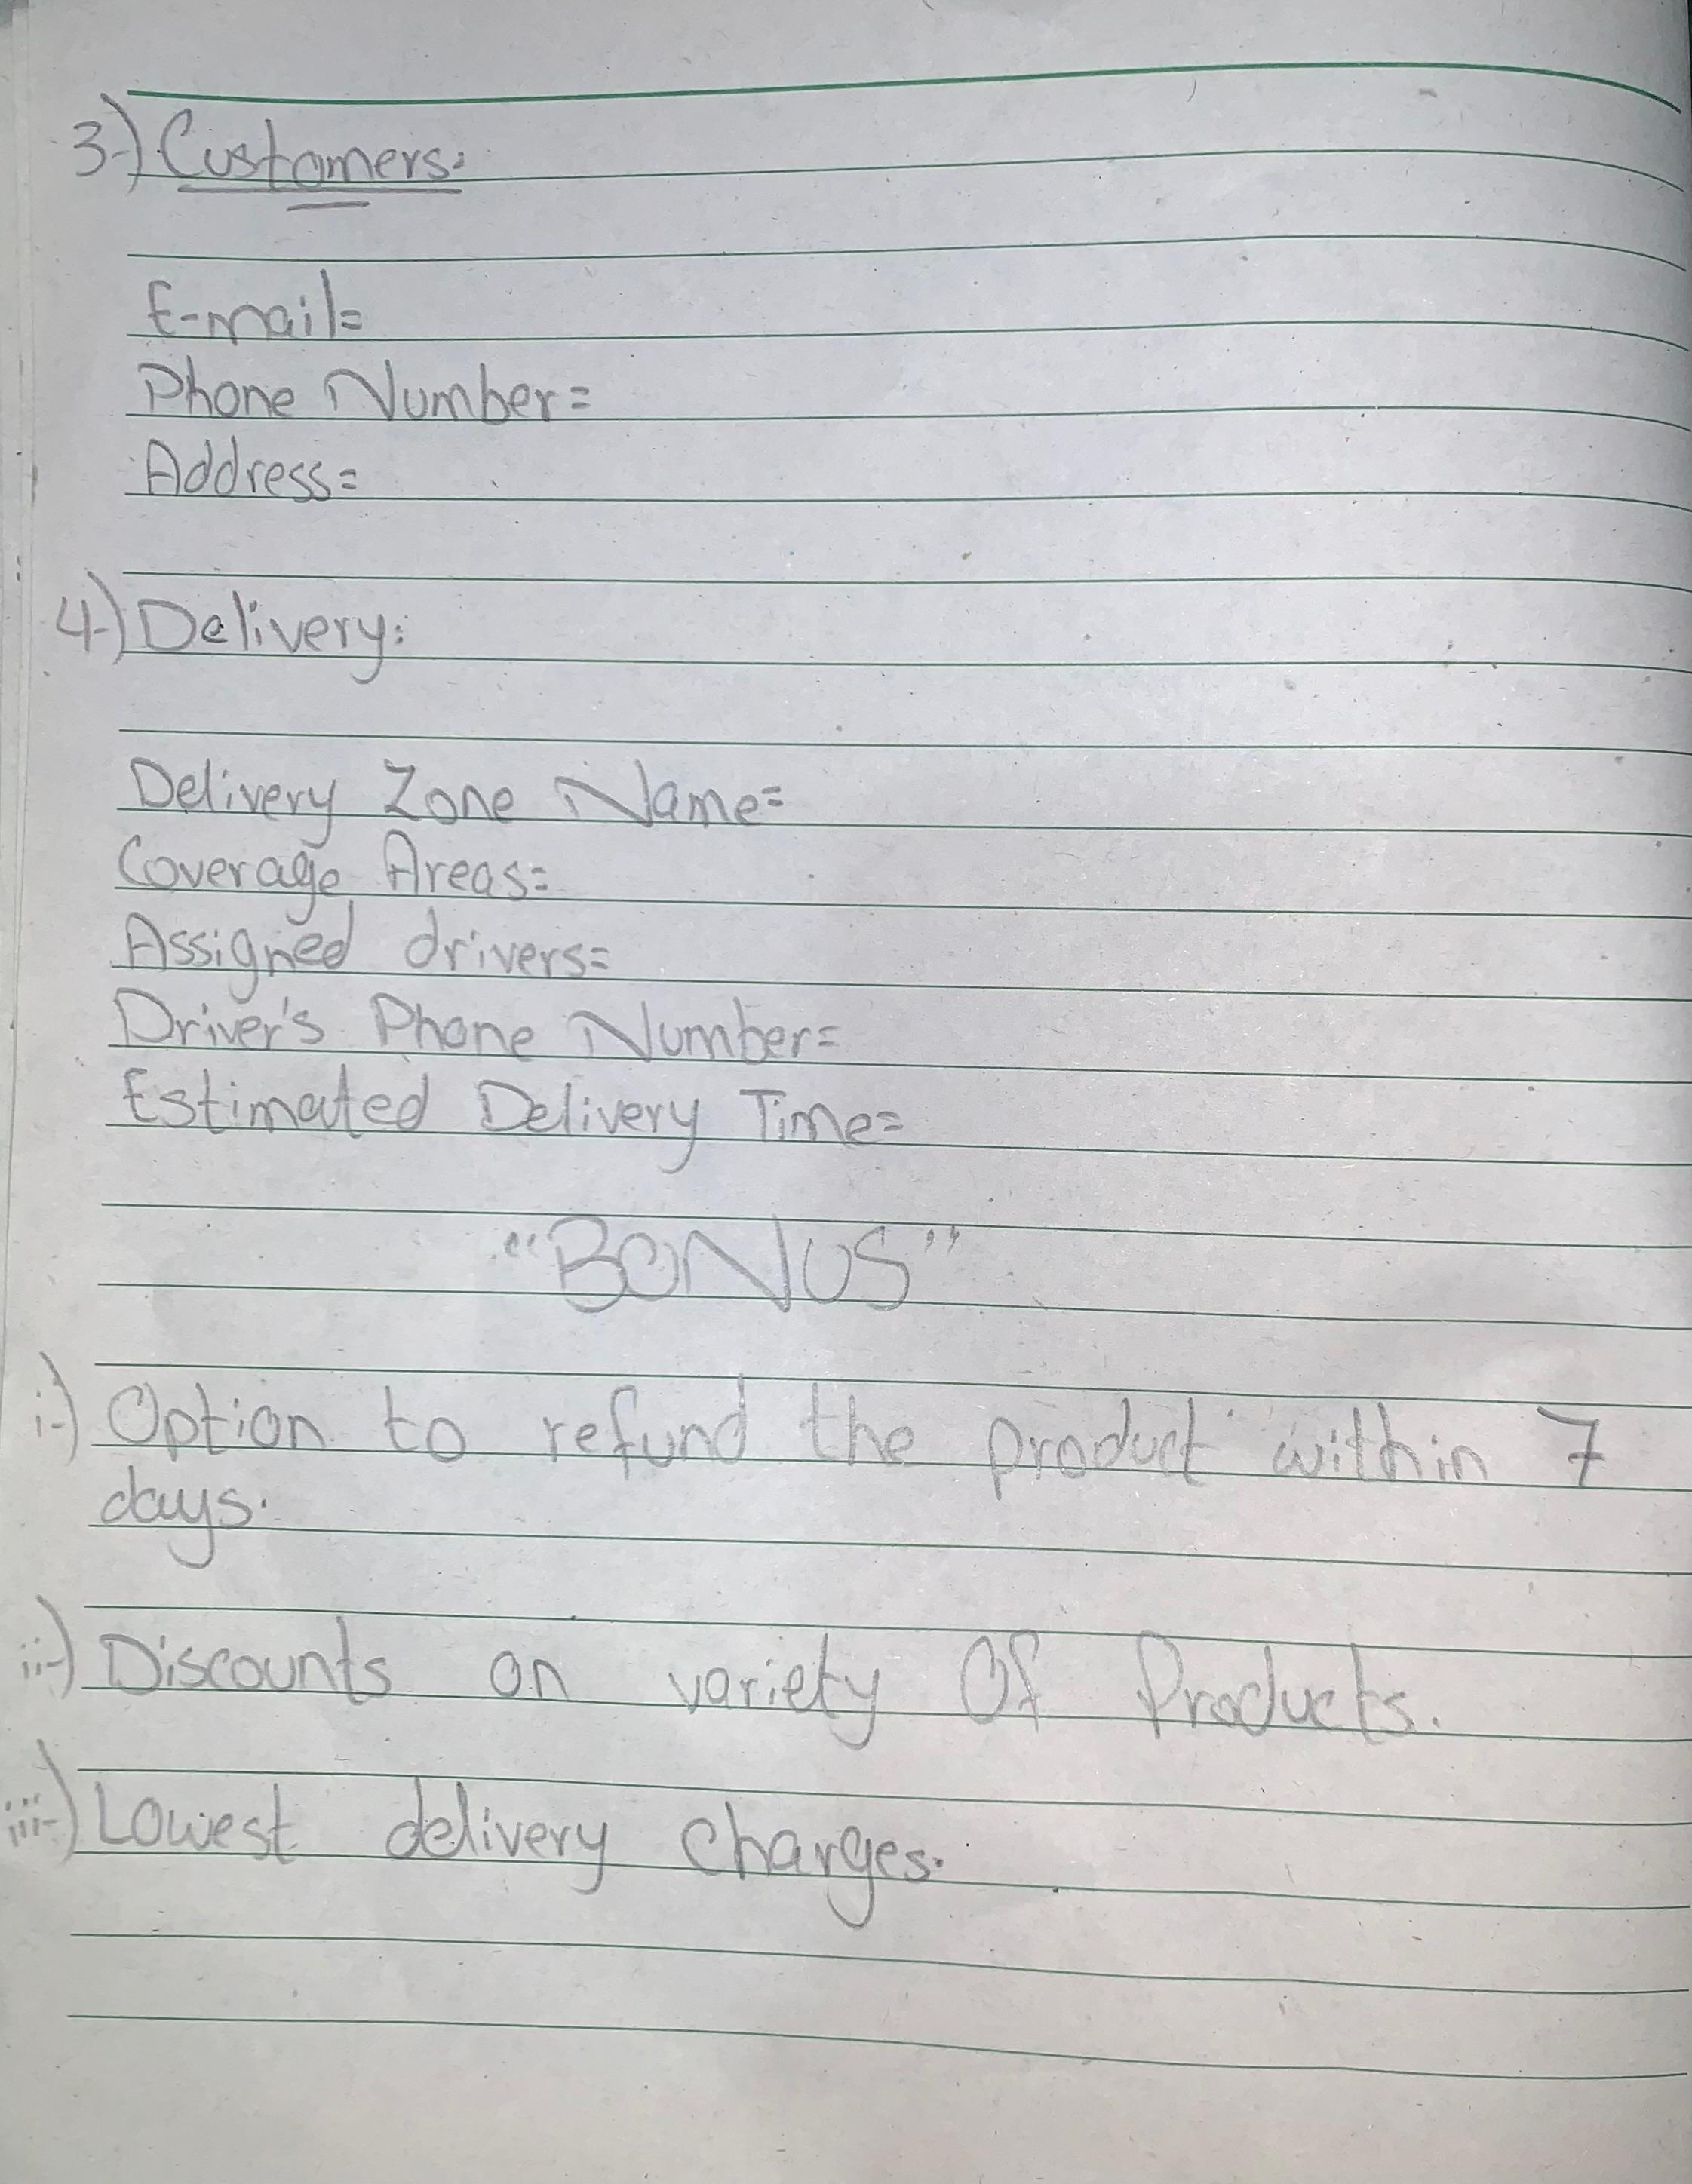 3-) Customers:
E-mail=
Phone Number=
Address=
4-) Delivery:
Delivery Zone Name=
Coverage Areas=
Assigned drivers=
Driver's Phone Number=
Estimated Delivery Time=
"BONUS"
i-) Option to refund the product within 7
days.
ii-) Discounts on variety Of Products.
iii-) Lowest delivery charges.